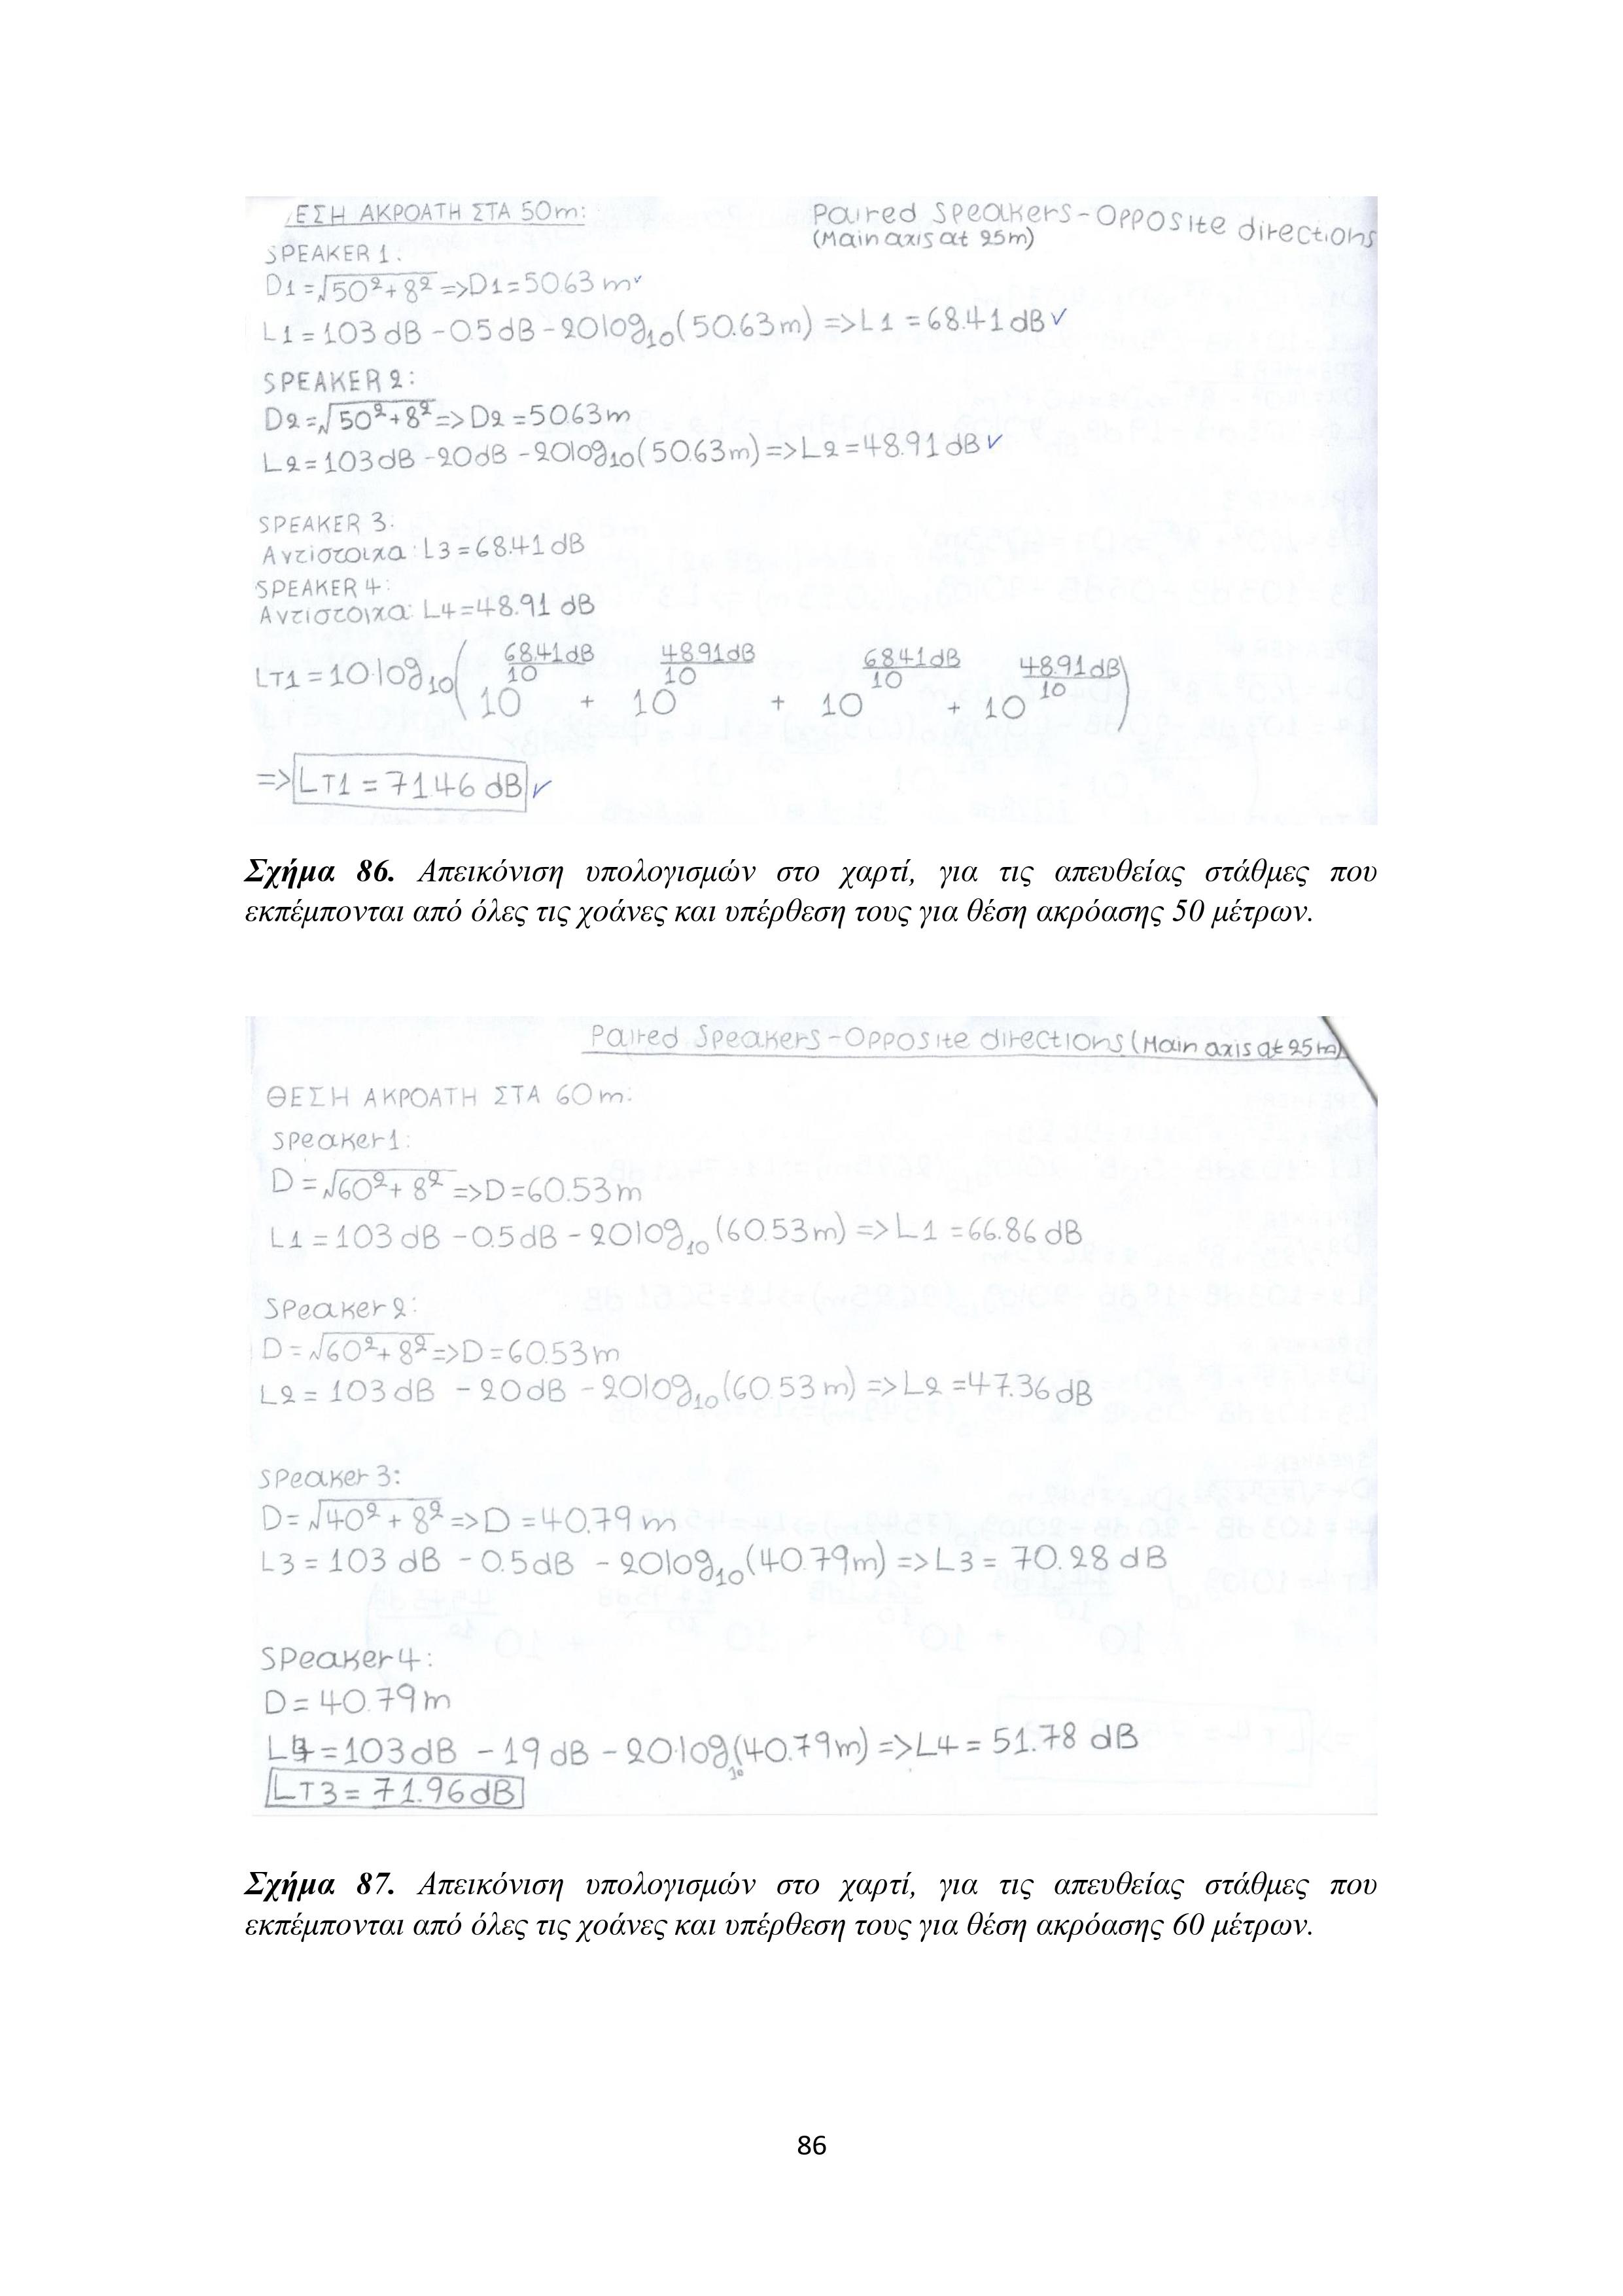 ΕΣΗ ΑΚΡΟΑΤΗ ΣΤΑ 50m:
Paired Speakers - Opposite directions
(Main axis at 25m)
SPEAKER 1:
D1 = √50²+8² => D1 = 50.63 m ✓
L1 = 103 dB - 0.5 dB - 20log₁₀(50.63m) => L1 = 68.41 dB ✓
SPEAKER 2:
D2 = √50²+8² => D2 = 50.63m
L2 = 103dB - 20dB - 20log₁₀(50.63m) => L2 = 48.91 dB ✓
SPEAKER 3:
Αντίστοιχα: L3 = 68.41 dB
SPEAKER 4:
Αντίστοιχα: L4 = 48.91 dB
LT1 = 10·log₁₀(10^(68.41dB/10) + 10^(48.91dB/10) + 10^(68.41dB/10) + 10^(48.91dB/10))
=> LT1 = 71.46 dB ✓
Σχήμα 86. Απεικόνιση υπολογισμών στο χαρτί, για τις απευθείας στάθμες που
εκπέμπονται από όλες τις χοάνες και υπέρθεση τους για θέση ακρόασης 50 μέτρων.
Paired Speakers - Opposite directions (Main axis at 25m)
ΘΕΣΗ ΑΚΡΟΑΤΗ ΣΤΑ 60m:
Speaker 1:
D = √60²+8² => D = 60.53m
L1 = 103 dB - 0.5dB - 20log₁₀(60.53m) => L1 = 66.86 dB
Speaker 2:
D = √60²+8² => D = 60.53m
L2 = 103 dB - 20dB - 20log₁₀(60.53m) => L2 = 47.36 dB
Speaker 3:
D = √40²+8² => D = 40.79 m
L3 = 103 dB - 0.5dB - 20log₁₀(40.79m) => L3 = 70.28 dB
Speaker 4:
D = 40.79m
L4 = 103dB - 19 dB - 20·log₁₀(40.79m) => L4 = 51.78 dB
LT3 = 71.96dB
Σχήμα 87. Απεικόνιση υπολογισμών στο χαρτί, για τις απευθείας στάθμες που
εκπέμπονται από όλες τις χοάνες και υπέρθεση τους για θέση ακρόασης 60 μέτρων.
86